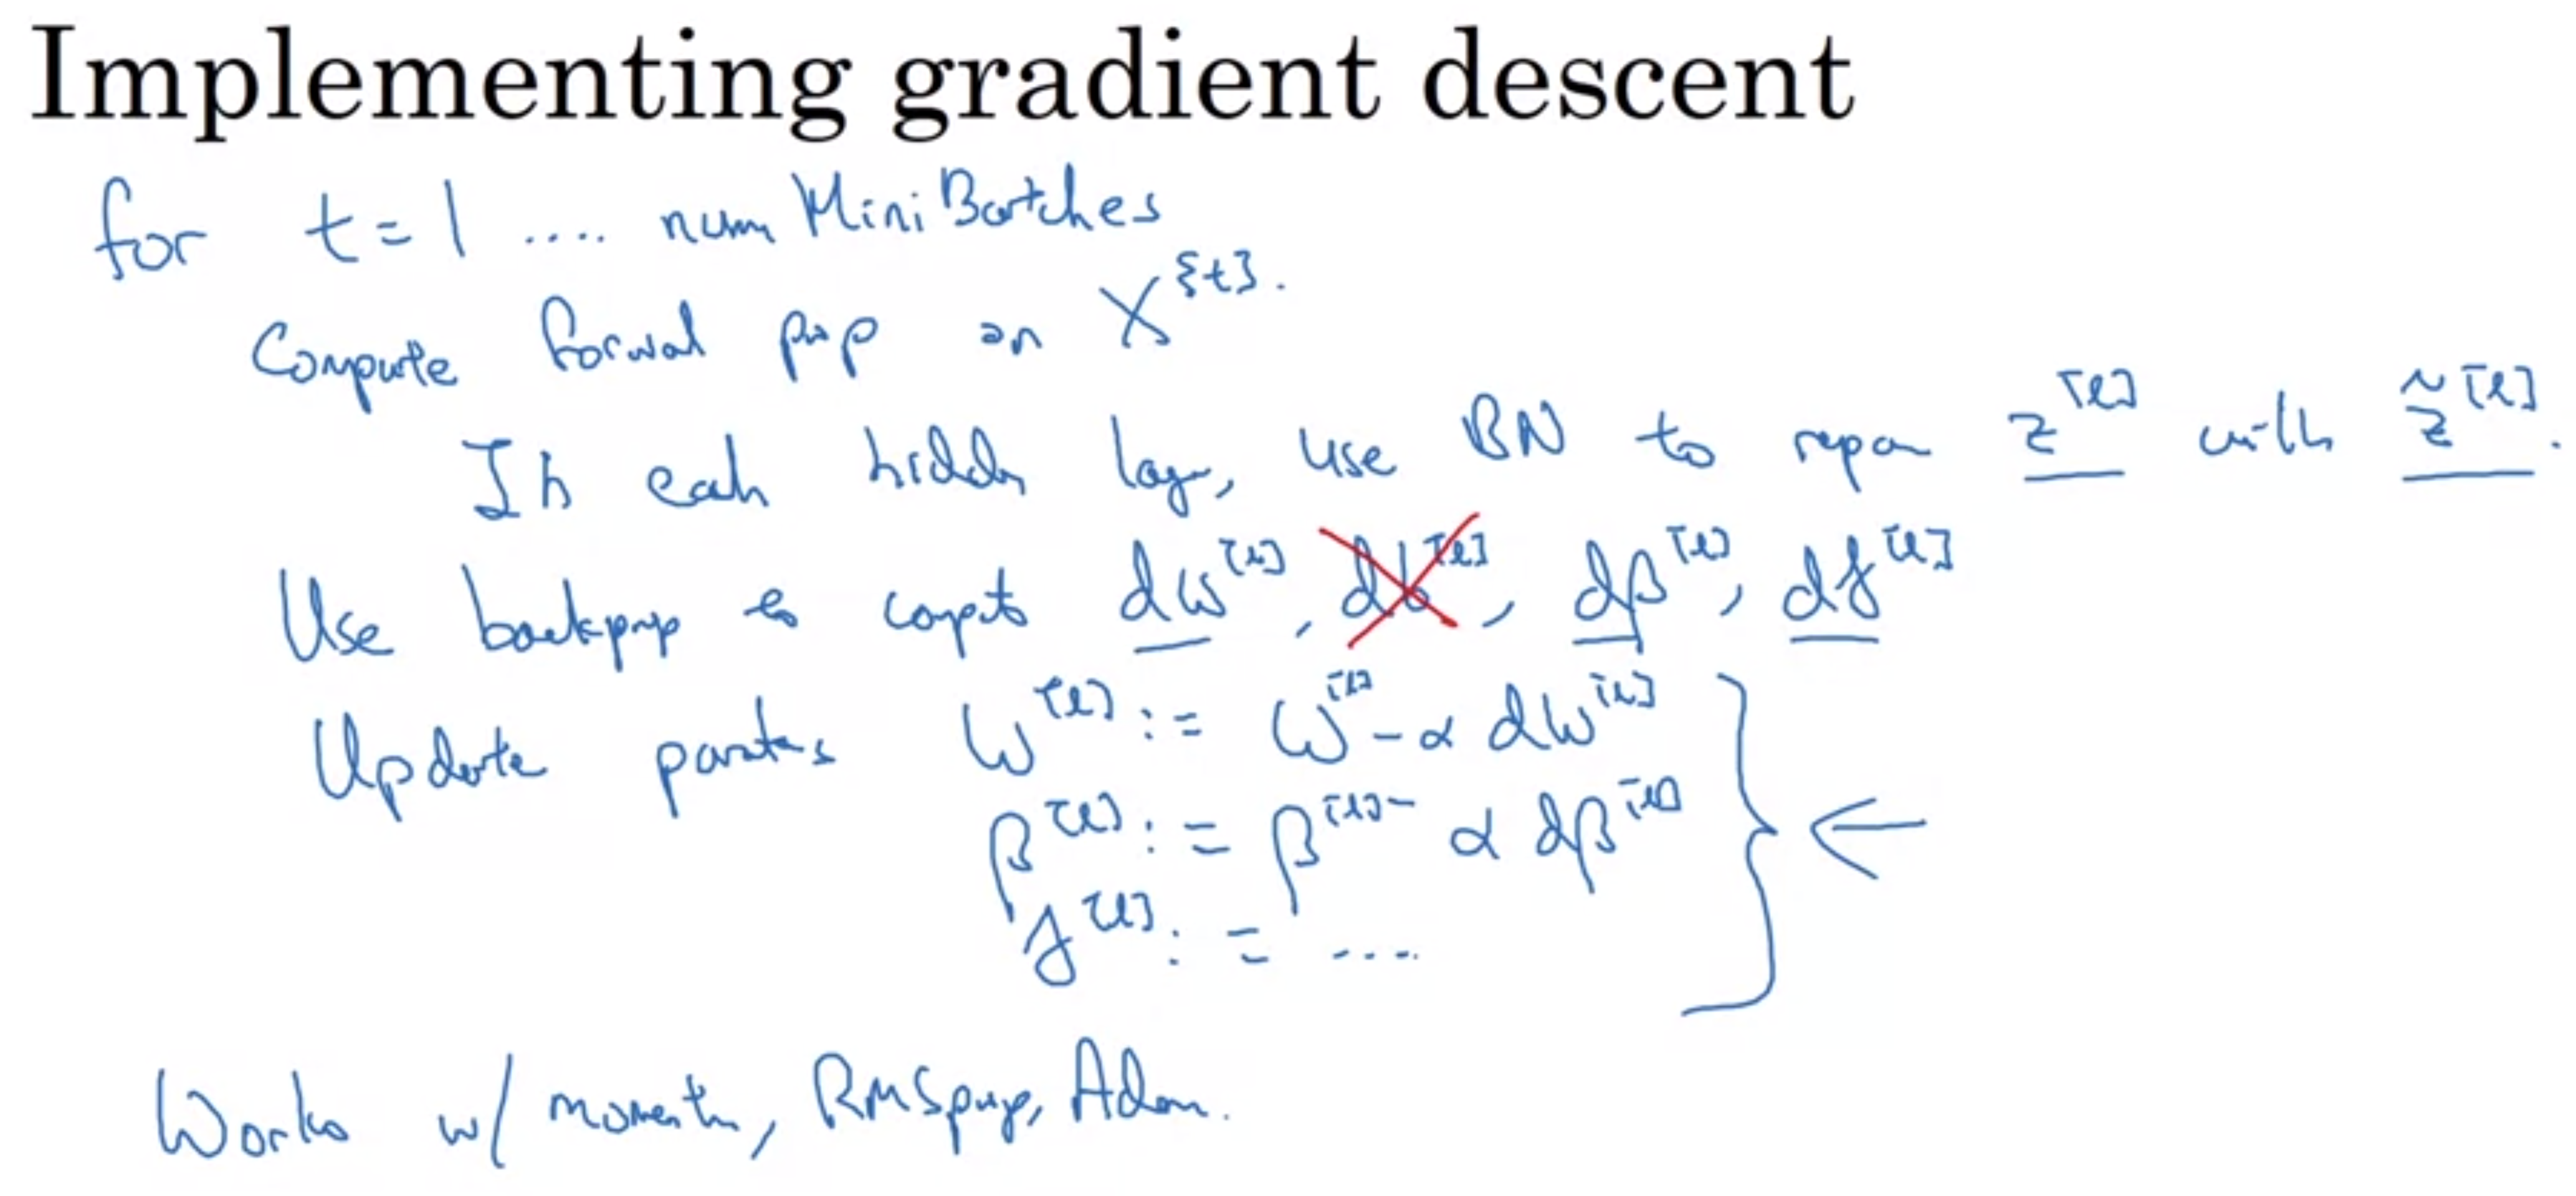 Implementing gradient descent
for t = 1 .... num MiniBatches
Compute forward prop on X^{t}.
In each hidden layer, use BN to replace z^[l] with z̃^[l].
Use backprop to compute dw^[l], db^[l], dβ^[l], dγ^[l]
Update parameters W^[l] := W^[l] - α dW^[l]
β^[l] := β^[l] - α dβ^[l]
γ^[l] := ....
Works w/ momentum, RMSprop, Adam.